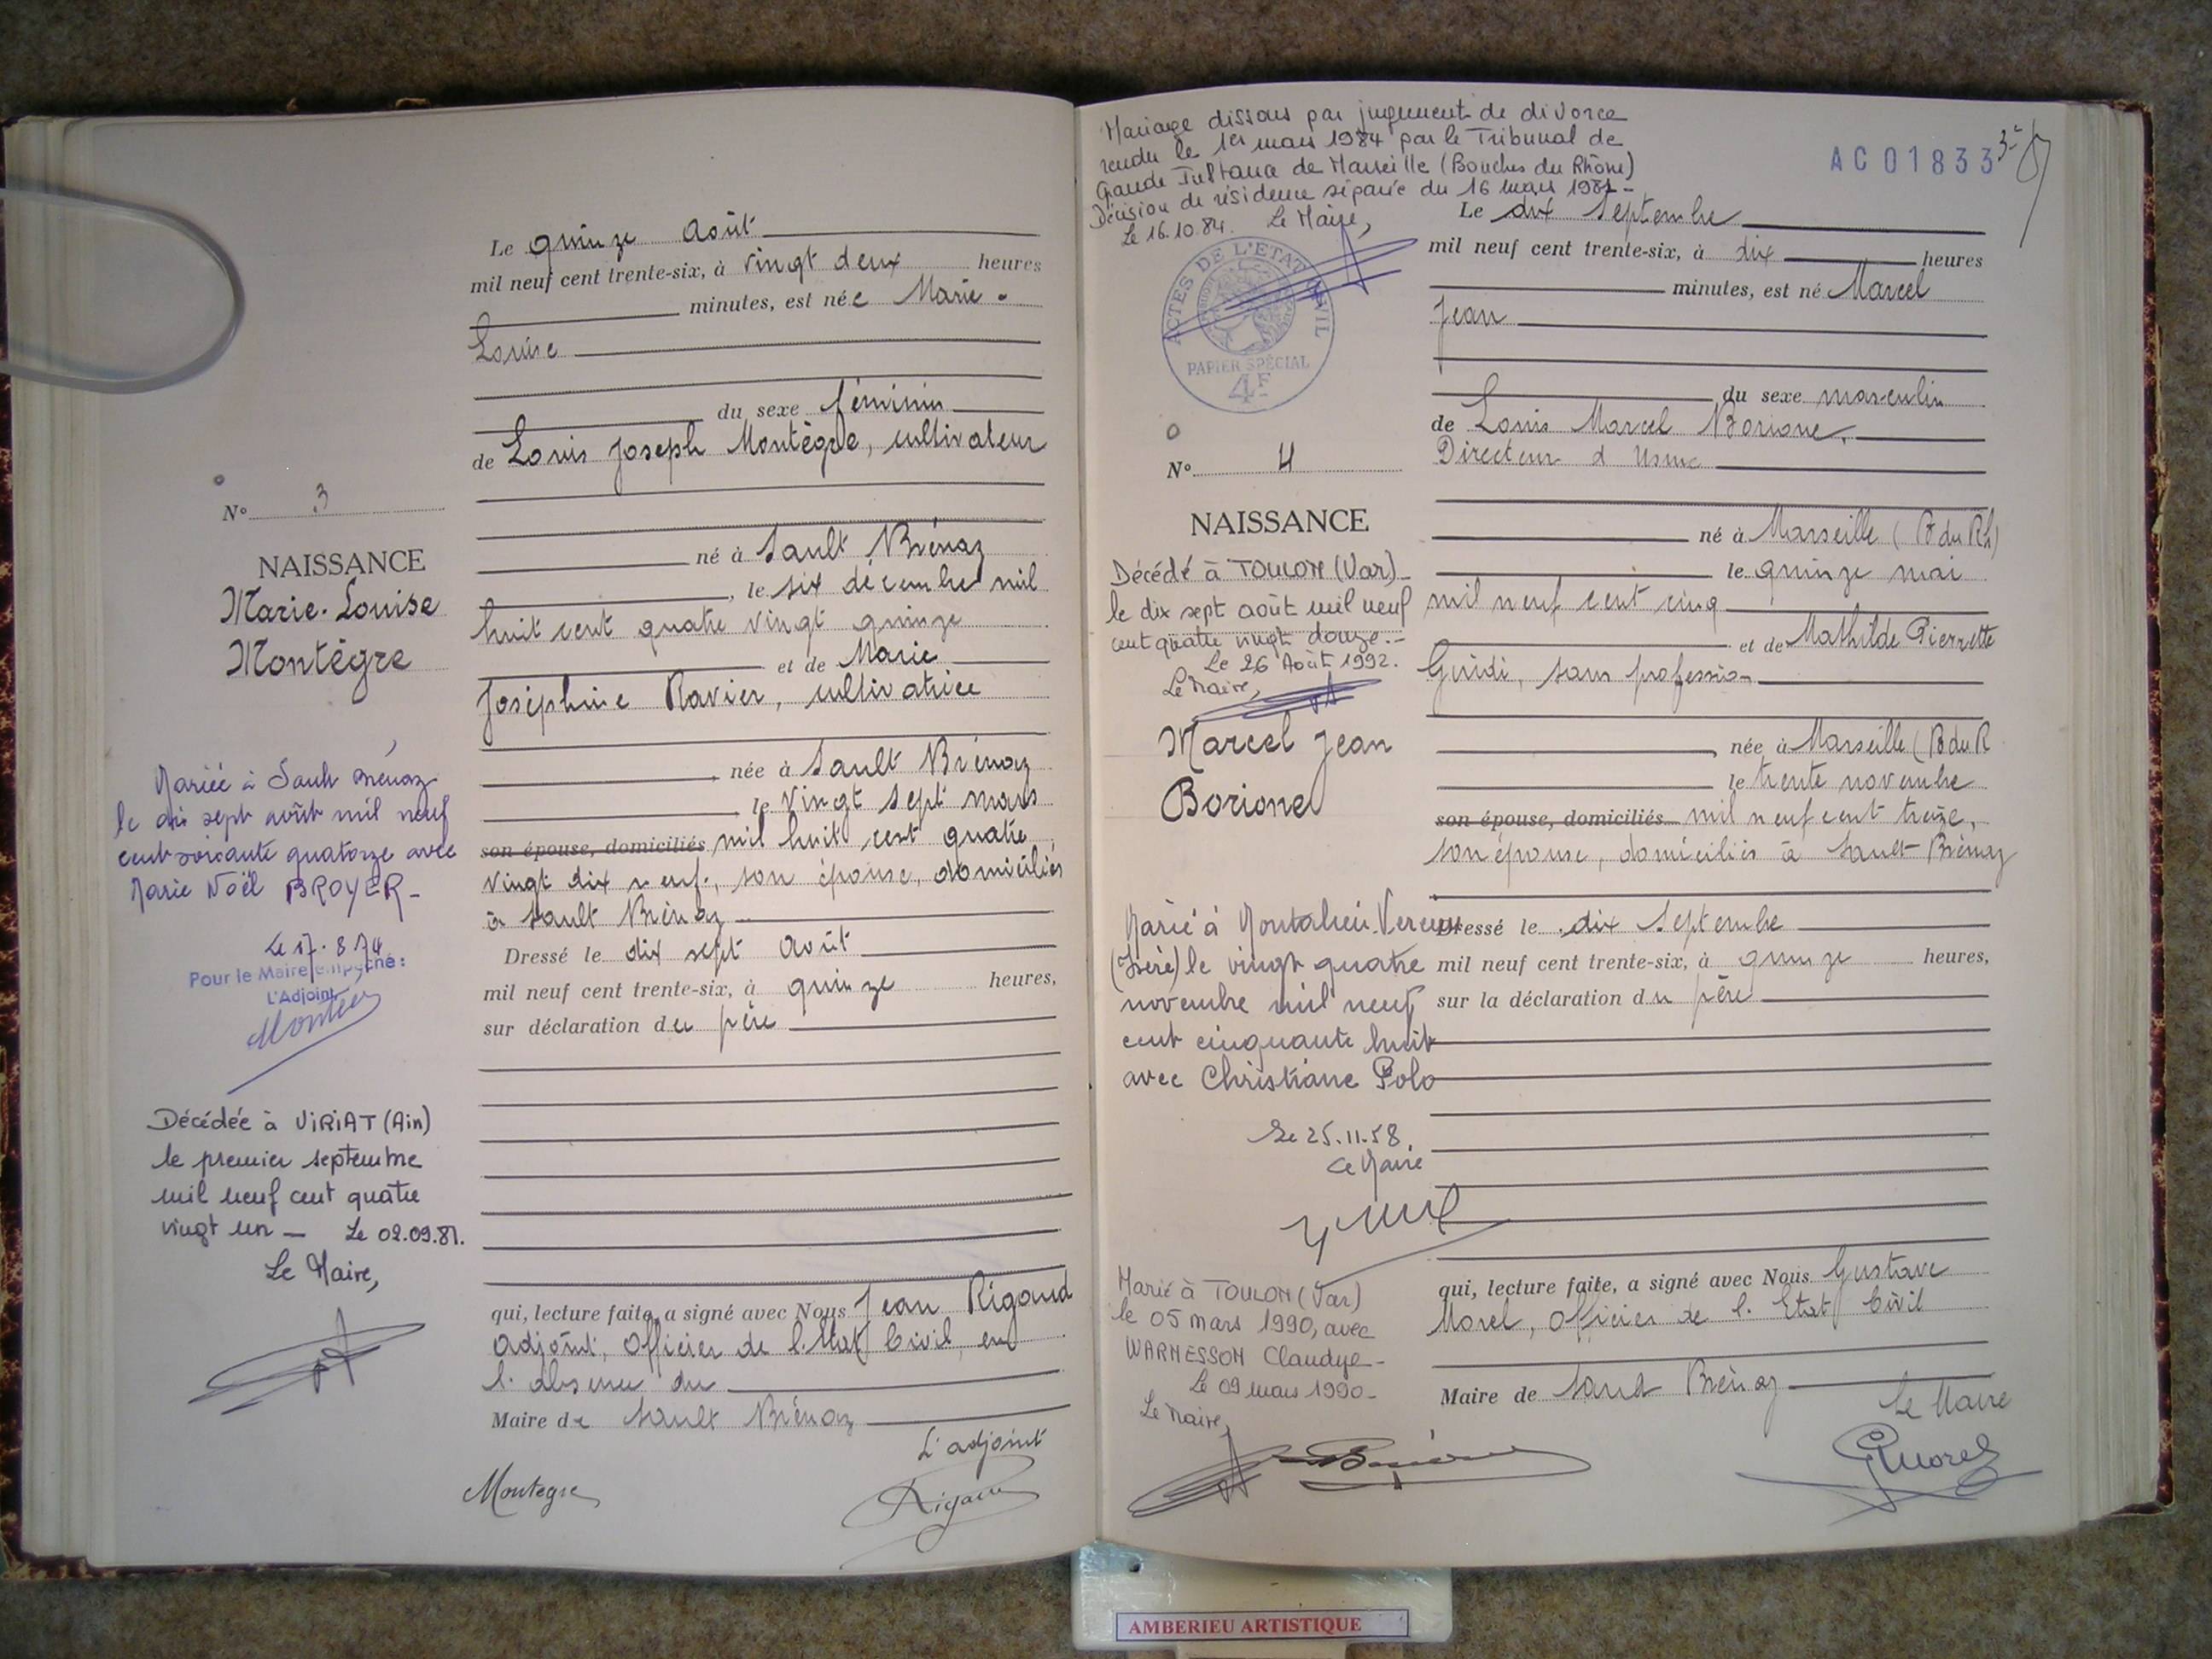 Le quinze Août
mil neuf cent trente-six, à vingt deux heures
minutes, est née Marie-
Louise
du sexe féminin
de Louis Joseph Montègre, cultivateur
né à Sault Brénaz
, le six décembre mil
huit cent quatre vingt quinze
et de Marie
Joséphine Ravier, cultivatrice
née à Sault Brénaz
le vingt sept mars
son épouse, domiciliés mil huit cent quatre
vingt dix neuf, son épouse, domiciliés
à Sault Brénaz
Dressé le dix sept Août
mil neuf cent trente-six, à quinze heures,
sur déclaration du père
qui, lecture faite, a signé avec Nous Jean Rigaud
adjoint, Officier de l'Etat Civil, en
l'absence du
Maire de Sault Brénaz
L'adjoint
Montegre
Rigaud
N° 3
NAISSANCE
Marie-Louise
Montègre
Mariée à Sault Brénaz
le dix sept août mil neuf
cent soixante quatorze avec
Marie Noël BROYER-
Le 17.8.74
Pour le Maire empêché :
L'Adjoint,
Décédée à VIRIAT (Ain)
le premier septembre
mil neuf cent quatre
vingt un — Le 02.09.81.
Le Maire,
Mariage dissous par jugement de divorce
rendu le 1er mars 1984 par le Tribunal de
Grande Instance de Marseille (Bouches du Rhône)
Décision de résidence séparée du 16 mars 1981-
Le 16.10.84. Le Maire,
ACTES DE L'ETAT CIVIL
PAPIER SPÉCIAL
4F
AC01833
N° 4
NAISSANCE
Décédé à TOULON (Var)
le dix sept août mil neuf
cent quatre vingt douze.-
Le 26 Août 1992.
Le Maire,
Marcel Jean
Borione
Marié à Montalieu-Vercieu
(Isère) le vingt quatre
novembre mil neuf
cent cinquante huit
avec Christiane Polo
Le 25.11.58.
Le Maire
Marié à TOULON (Var)
le 05 mars 1990, avec
WARNESSON Claudye-
Le 09 mars 1990-
Le Maire,
Le dix Septembre
mil neuf cent trente-six, à dix heures
minutes, est né Marcel
Jean
du sexe masculin
de Louis Marcel Borione,
Directeur d'Usine
né à Marseille (B du Rh)
le quinze mai
mil neuf cent cinq
et de Mathilde Pierrette
Guidi, sans profession
née à Marseille (B du R
le trente novembre
son épouse, domiciliés mil neuf cent treize,
son épouse, domiciliés à Sault-Brénaz
Dressé le dix Septembre
mil neuf cent trente-six, à quinze heures,
sur la déclaration du père
qui, lecture faite, a signé avec Nous Gustave
Morel, Officier de l'Etat Civil
Maire de Sault Brénaz
Le Maire
GMorel
AMBERIEU ARTISTIQUE